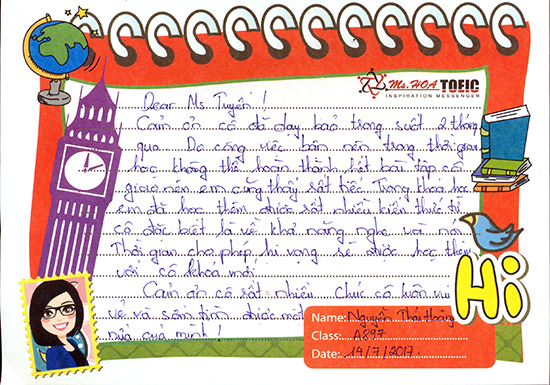 Ms. HOA TOEIC
INSPIRATION MESSENGER
Dear Ms. Tuyến !
Cảm ơn cô đã dạy bảo trong suốt 2 tháng
qua. Do công việc bận nên trong thời gian
học không thể hoàn thành hết bài tập cô
giao nên em cũng thấy rất tiếc. Trong khóa học
em đã học thêm được rất nhiều kiến thức từ
cô đặc biệt là về khả năng nghe và nói.
Thời gian cho phép, hi vọng sẽ được học thêm
với cô khóa mới.
Cảm ơn cô rất nhiều. Chúc cô luôn vui
vẻ và sớm tìm được một
nửa của mình !
Hi
Name: Nguyễn Thái Hoàng
Class: A897
Date: 14/7/2017